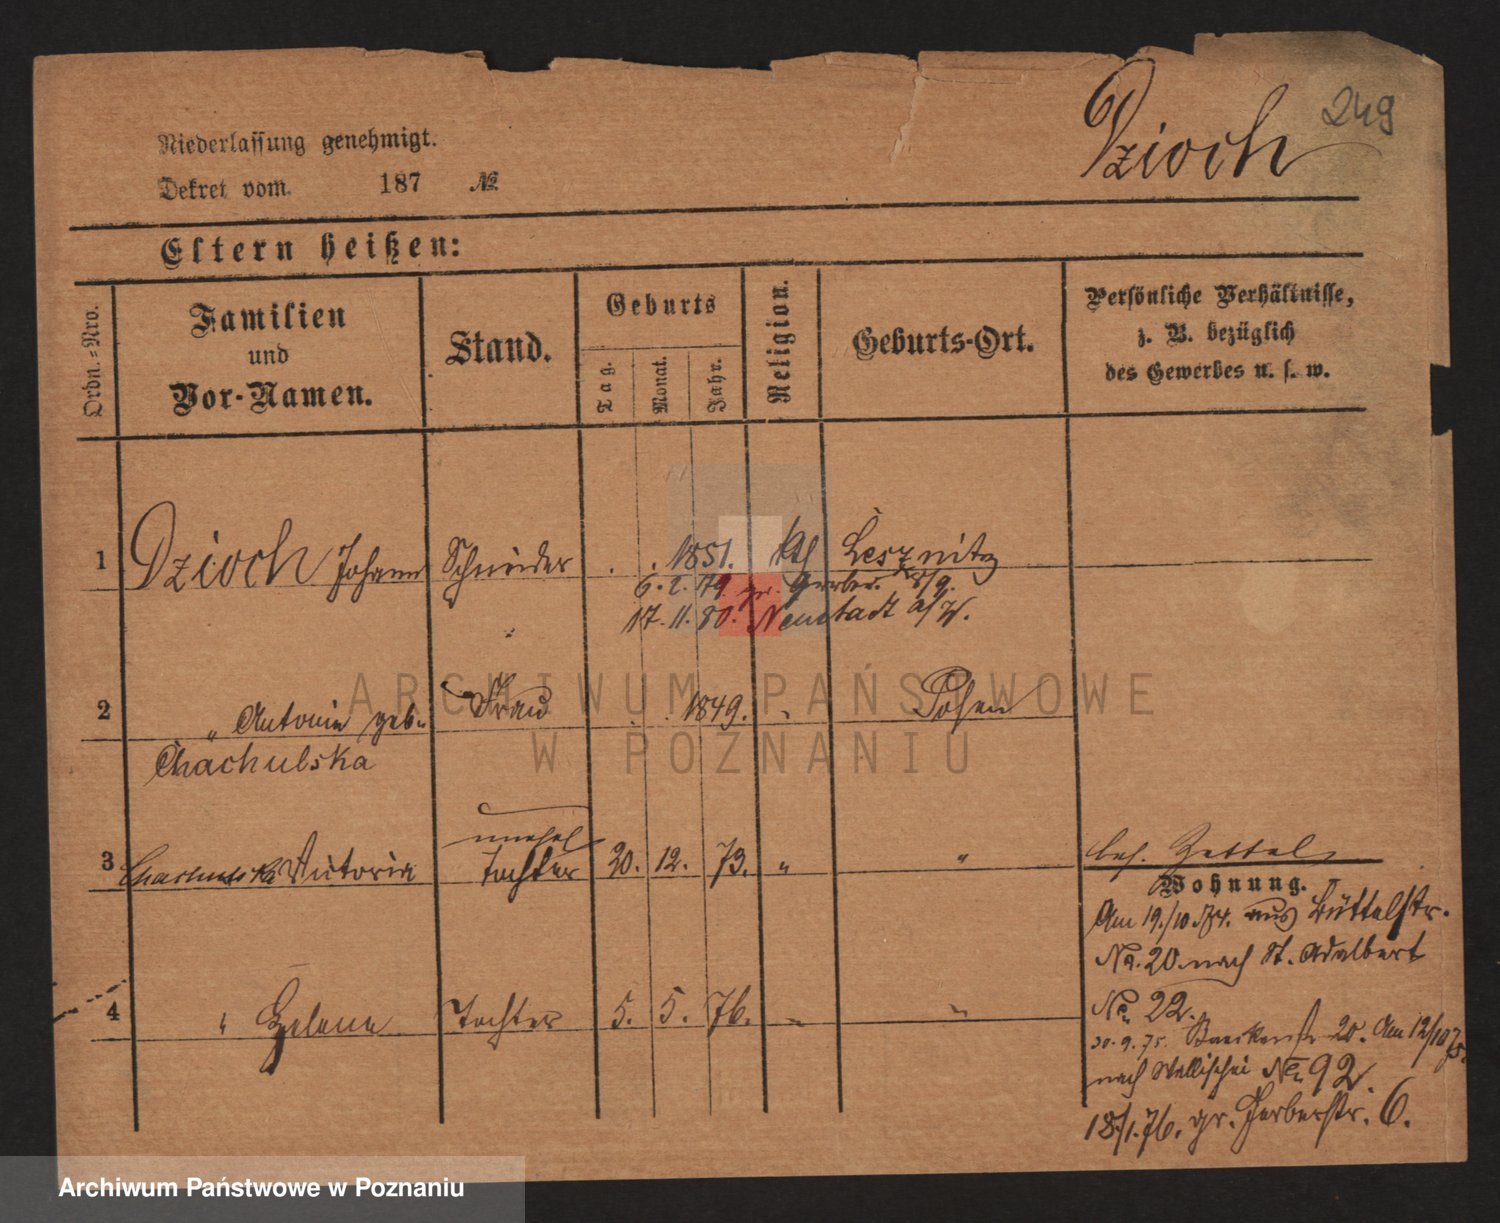 249
Dzioch
Niederlassung genehmigt.
Dekret vom 187 №
Eltern heißen:
Ordn.-Nro.
Familien
und
Vor-Namen.
Stand.
Geburts
Tag.
Monat.
Jahr.
Religion.
Geburts-Ort.
Persönliche Verhältnisse,
z. B. bezüglich
des Gewerbes u. s. w.
1 Dzioch Johann Schneider . . 1851. kth Lesznitz
6. 2. 79 gr. Gerber. 8/9.
17. 11. 80. Neustadt a/W.
2 " Antonie geb. Frau . . 1849. " Posen
Chachulska
unehel
3 Chachulska Victoria Tochter 20. 12. 73. " "
4 " Helene Tochter 5. 5. 76. " "
bes. Zettel
Wohnung.
Am 19./10.74. aus Büttelstr.
No. 20 nach St. Adalbert
No. 22.
30.9.75. 20. Am 12/10 75.
nach Wallischei No. 92.
18/1.76. gr. Gerberstr. 6.
ARCHIWUM PAŃSTWOWE
W POZNANIU
Archiwum Państwowe w Poznaniu